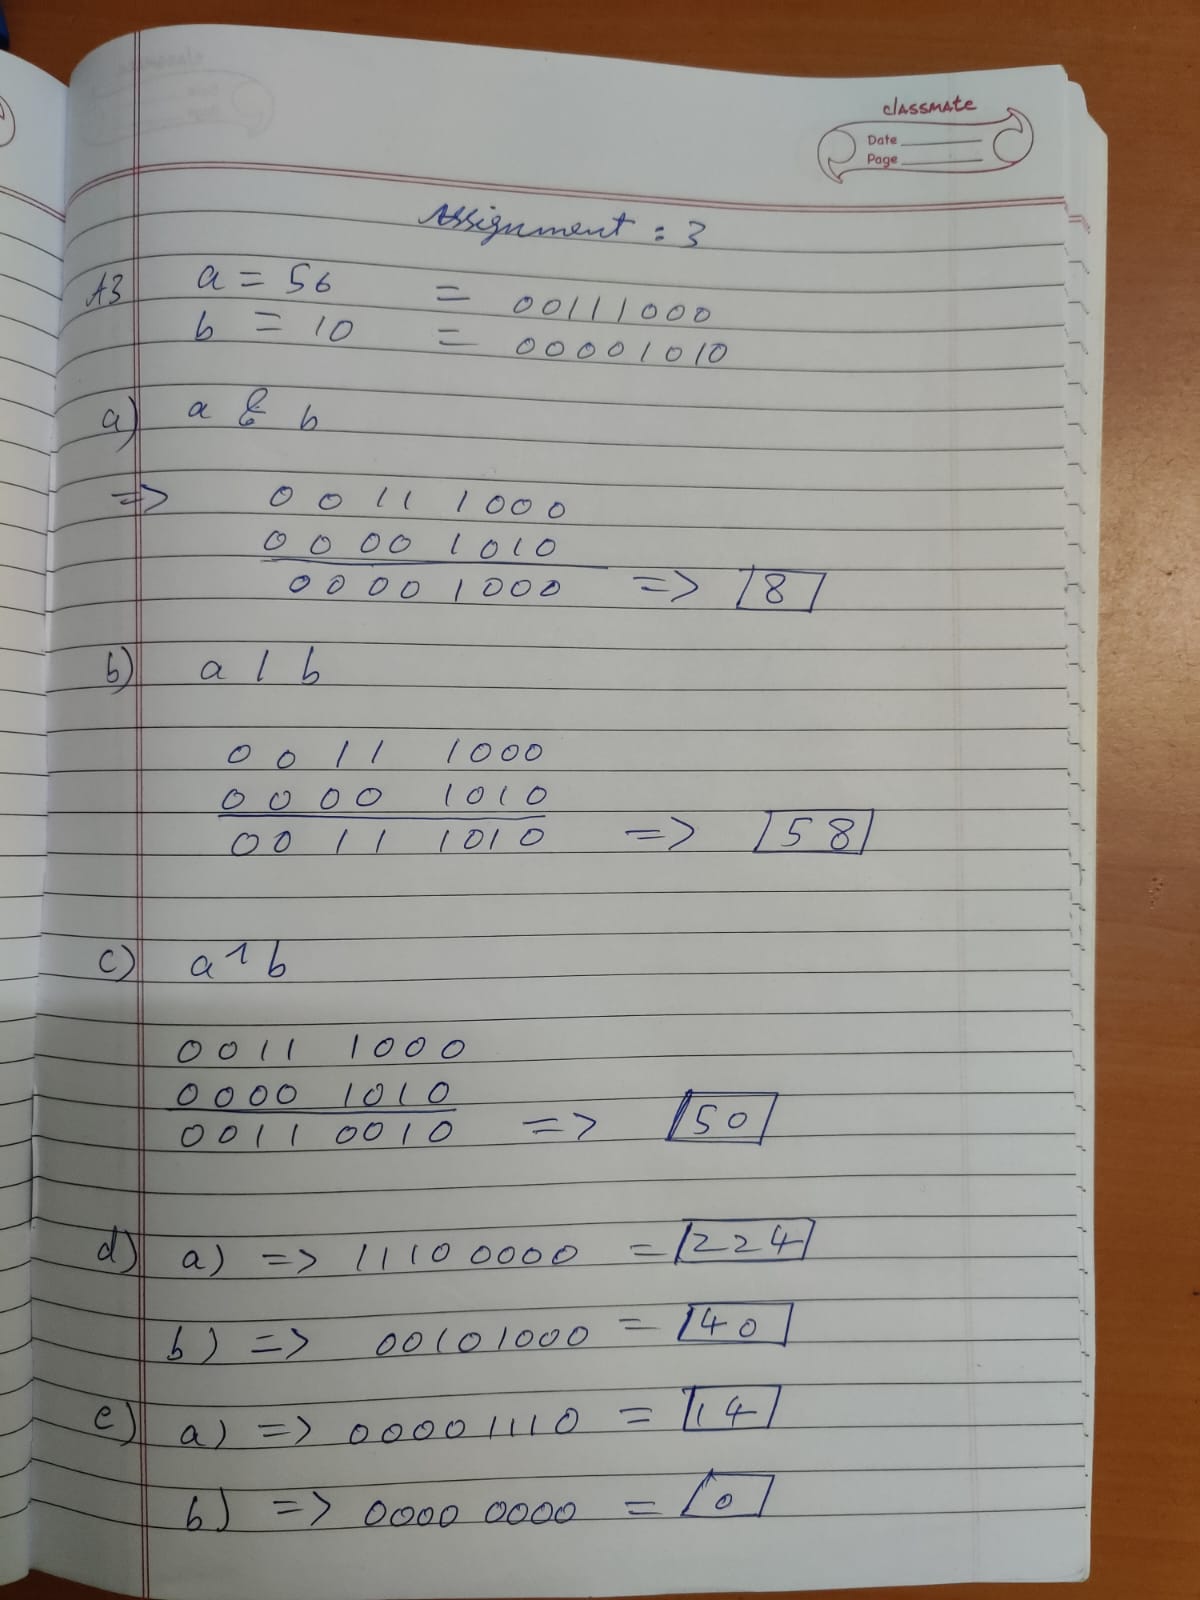 classmate
Date
Page
Assignment : 3
A3 a = 56 = 00111000
b = 10 = 00001010
a) a & b
=> 0 0 1 1 1 0 0 0
0 0 0 0 1 0 1 0
0 0 0 0 1 0 0 0 => 8
b) a | b
0 0 1 1 1 0 0 0
0 0 0 0 1 0 1 0
0 0 1 1 1 0 1 0 => 58
c) a ^ b
0 0 1 1 1 0 0 0
0 0 0 0 1 0 1 0
0 0 1 1 0 0 1 0 => 50
d) a) => 1110 0000 = 224
b) => 00101000 = 40
e) a) => 00001110 = 14
b) => 0000 0000 = 0